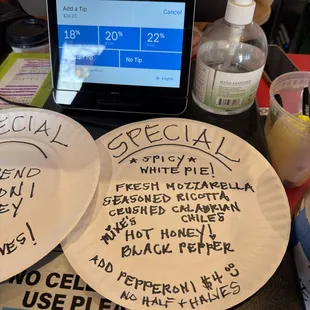 Add a Tip
Cancel
18%
20%
22%
No Tip
English
SPECIAL
SPICY
WHITE PIE!
FRESH MOZZARELLA
SEASONED RICOTTA
CRUSHED CALABRIAN
CHILES
MIKE'S
HOT HONEY!
BLACK PEPPER
ADD PEPPERONI $4.00
NO HALF + HALVES
ECIAL
END
ONI
EY
VES!
NO CELL
USE PLE